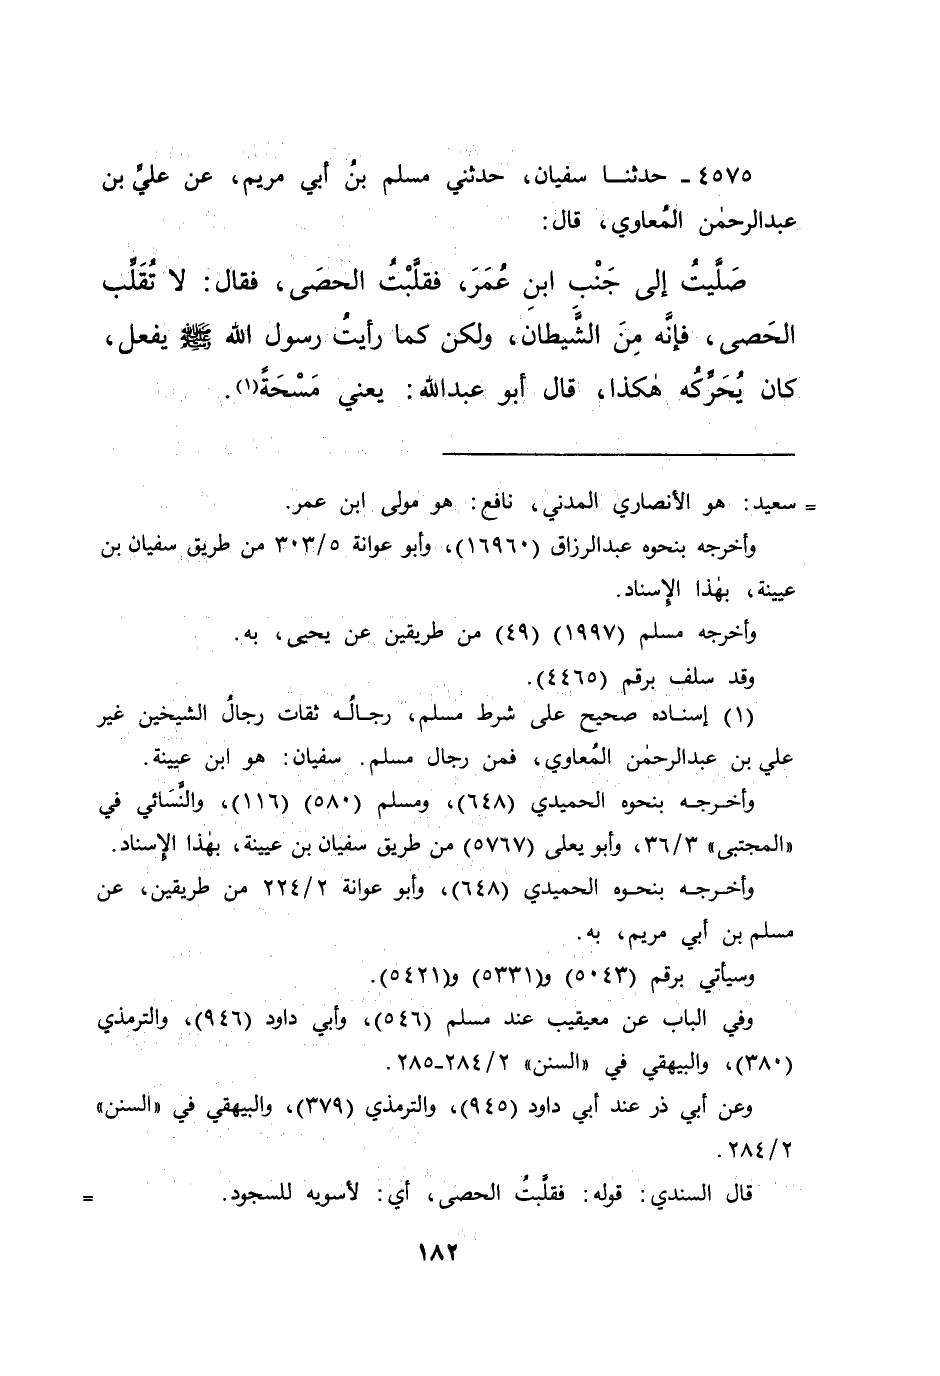 ٤٥٧٥ ـ حدثنـــا سفيان، حدثني مسلم بنُ أبي مريم، عن عليِّ بن
عبدالرحمٰن المُعاوي، قال:
صَلَّيتُ إلى جَنْبِ ابنِ عُمَرَ، فقلَّبْتُ الحصَى، فقال: لا تُقَلِّب
الحَصى، فإنَّه مِنَ الشَّيطان، ولكن كما رأيتُ رسول الله ﷺ يفعل،
كان يُحَرِّكُه هٰكذا، قال أبو عبدالله: يعني مَسْحَةً(١).
= سعيد: هو الأنصاري المدني، نافع: هو مولى ابن عمر.
وأخرجه بنحوه عبدالرزاق (١٦٩٦٠)، وأبو عوانة ٣٠٣/٥ من طريق سفيان بن
عيينة، بهٰذا الإسناد.
وأخرجه مسلم (١٩٩٧) (٤٩) من طريقين عن يحيى، به.
وقد سلف برقم (٤٤٦٥).
(١) إسنـاده صحيح على شرط مسلم، رجـالُـه ثقات رجالُ الشيخين غير
علي بن عبدالرحمٰن المُعاوي، فمن رجال مسلم. سفيان: هو ابن عيينة.
وأخـرجـه بنحوه الحميدي (٦٤٨)، ومسلم (٥٨٠) (١١٦)، والنَّسَائي في
«المجتبى» ٣٦/٣، وأبو يعلى (٥٧٦٧) من طريق سفيان بن عيينة، بهٰذا الإسناد.
وأخـرجـه بنحـوه الحميدي (٦٤٨)، وأبو عوانة ٢٢٤/٢ من طريقين، عن
مسلم بن أبي مريم، به.
وسيأتي برقم (٥٠٤٣) و(٥٣٣١) و(٥٤٢١).
وفي الباب عن معيقيب عند مسلم (٥٤٦)، وأبي داود (٩٤٦)، والترمذي
(٣٨٠)، والبيهقي في «السنن» ٢٨٤/٢ـ٢٨٥.
وعن أبي ذر عند أبي داود (٩٤٥)، والترمذي (٣٧٩)، والبيهقي في «السنن»
٢٨٤/٢.
قال السندي: قوله: فقلَّبتُ الحصى، أي: لأسويه للسجود. =
١٨٢